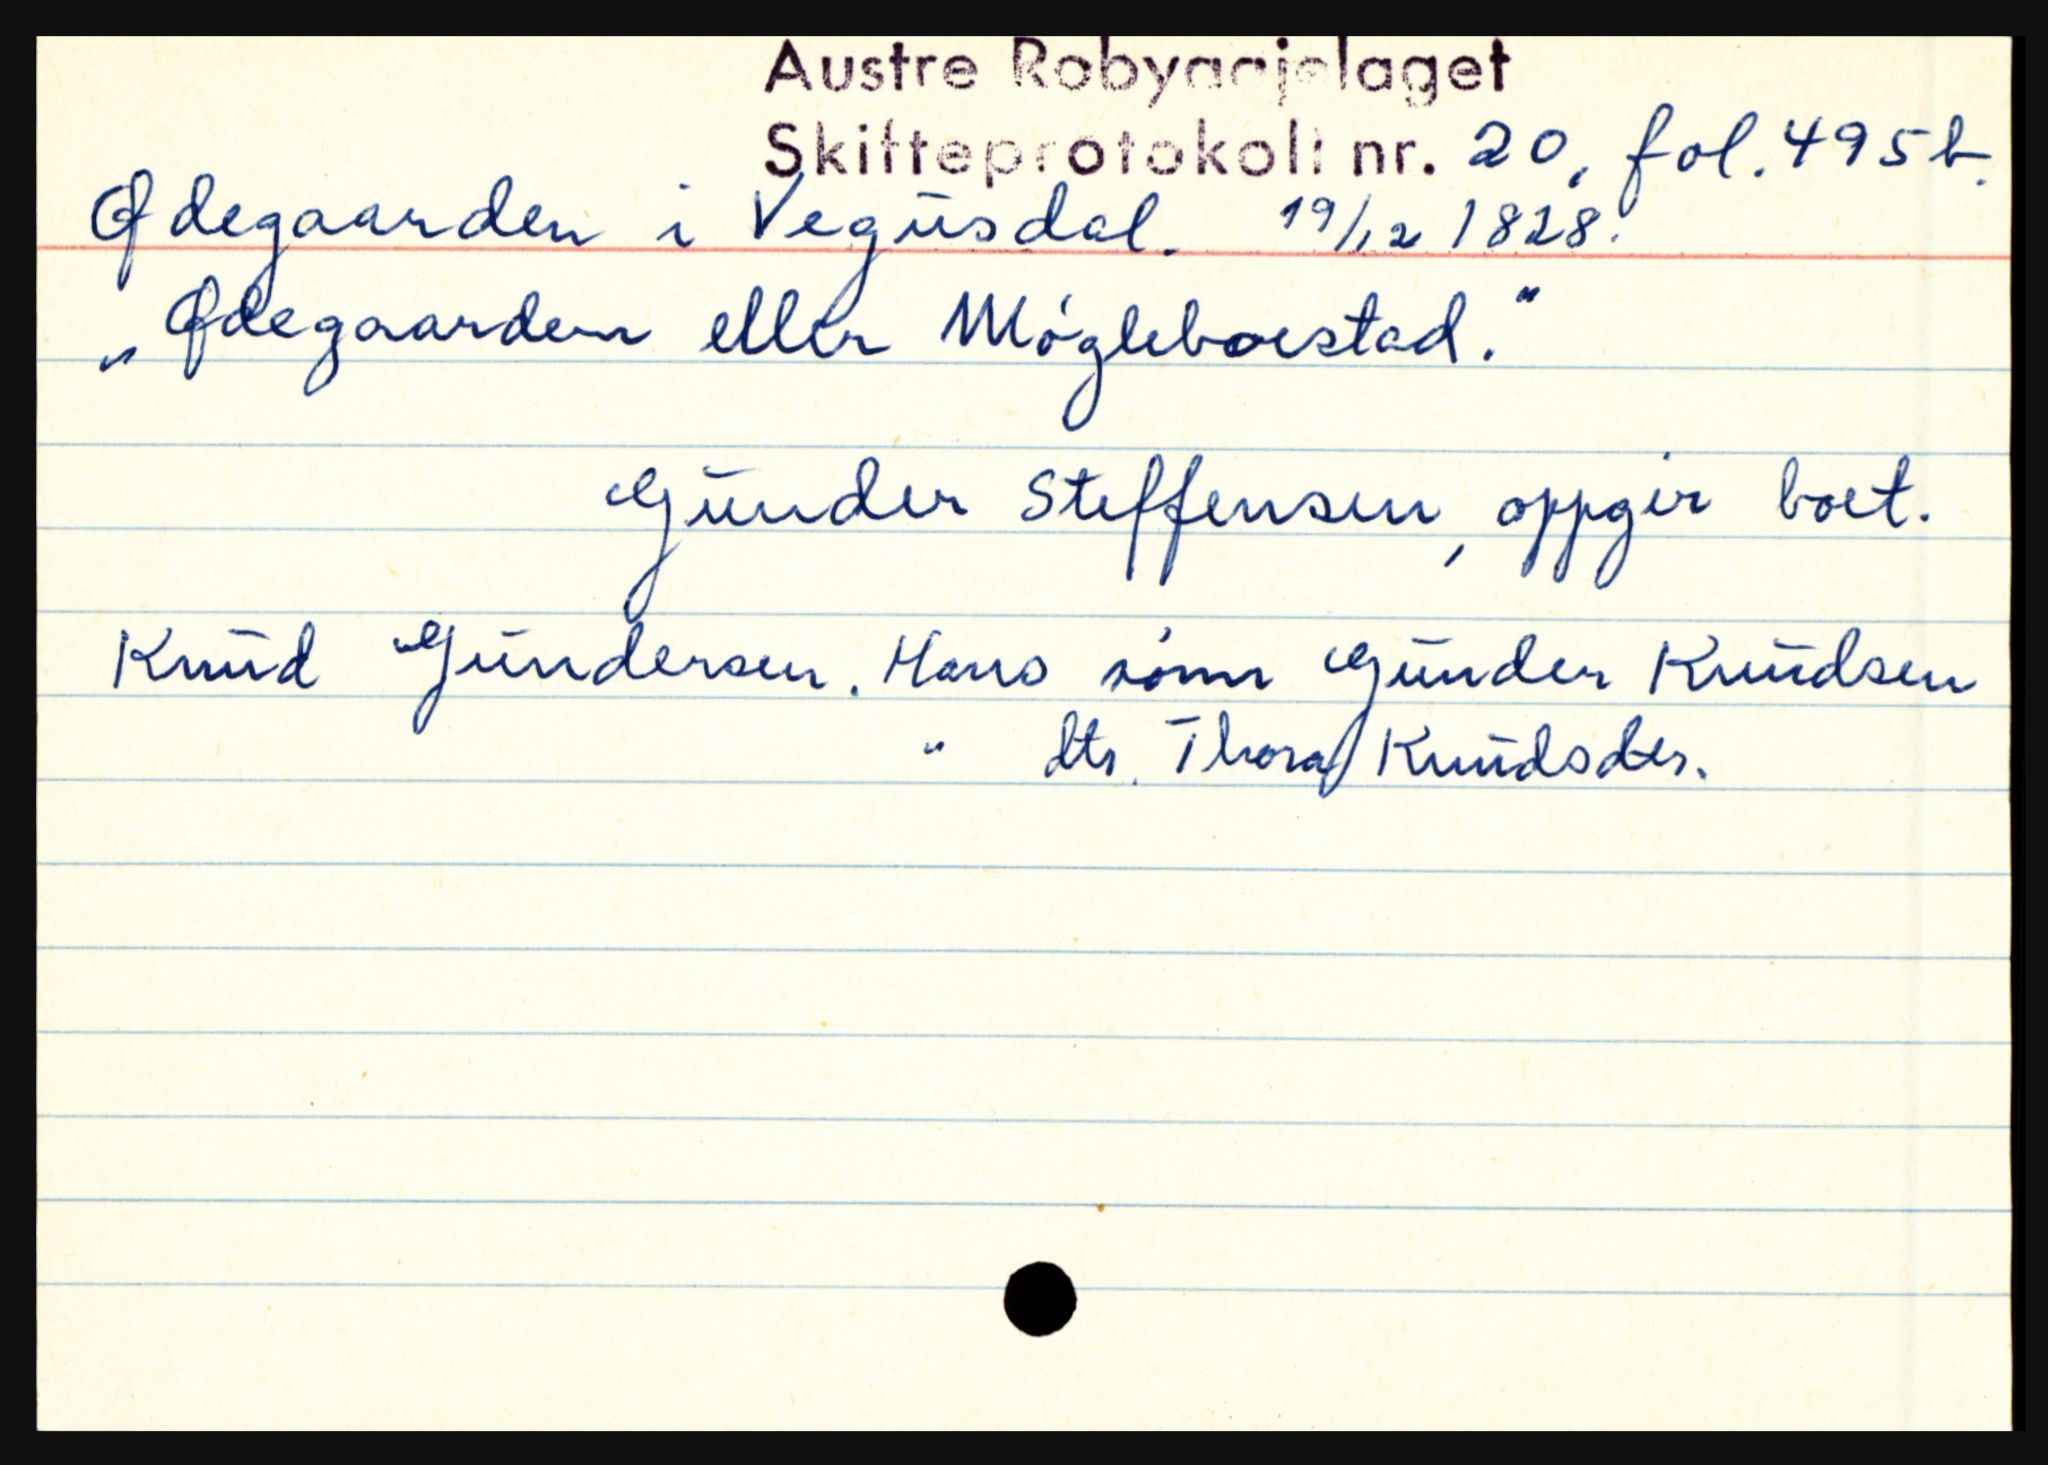 Austre Robyggjelaget
Skifteprotokoll nr. 20, fol. 495b.
Ødegaarden i Vegusdal. 19/12 1828.
„Ødegaarden eller Mögleboestad."
Gunder Steffensen, oppgir boet.
Knud Gundersen. Hans sönn Gunder Knudsen
" dtr. Thora Knudsdtr.